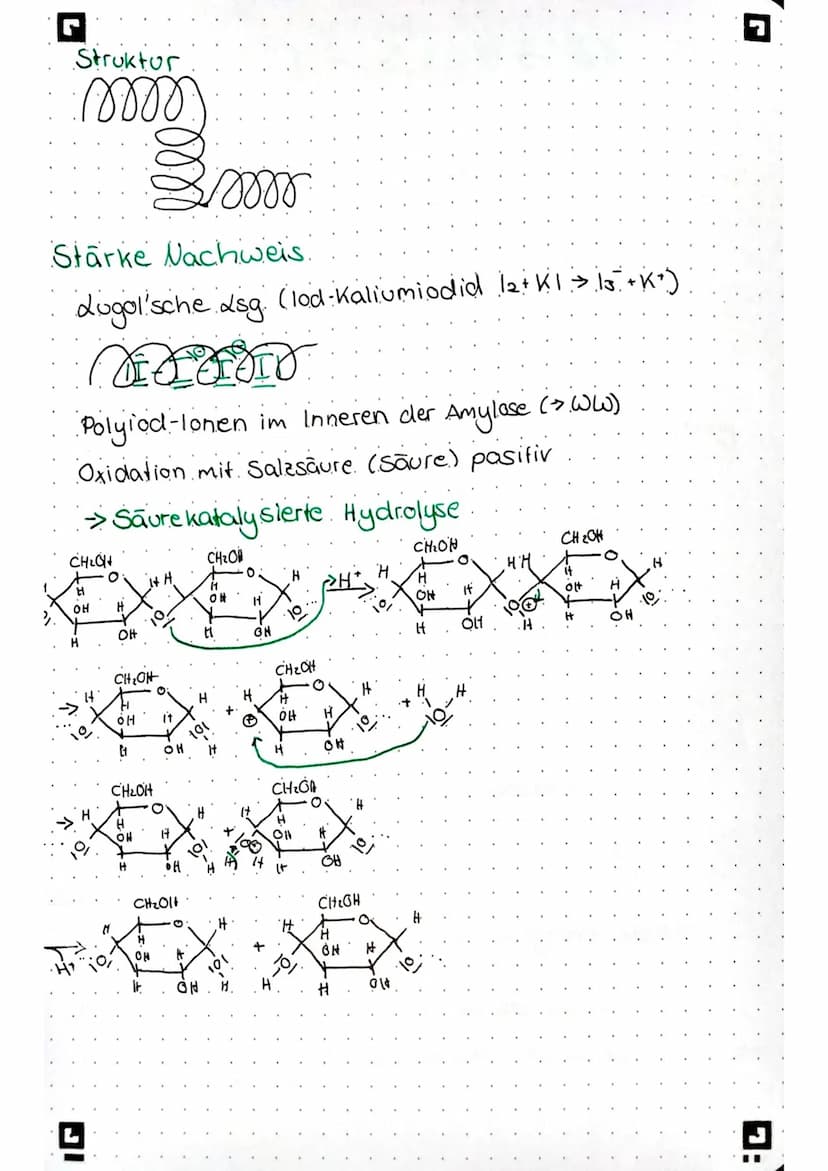 Struktur
Stärke Nachweis
Lugol'sche Lsg. (Iod-Kaliumiodid I2 + KI → I3⁻ + K⁺)
I-I-I-I
Polyiod-Ionen im Inneren der Amylose (→ WW)
Oxidation mit Salzsäure (Säure) positiv
→ Säurekatalysierte Hydrolyse
CH2OH CH2OH CH2OH CH2OH
H O H H H O H → H⁺ H H O H H H O H
OH H O OH H O O OH H O ⊕ OH H O
H OH H OH H OH H H OH
CH2OH CH2OH
→ H H O H + H H O H + H H
O OH H O ⊕ OH H O O
H OH H H OH
CH2OH CH2OH
→ H H O H + H H O H
O OH H O O ⊕ OH H O
H OH H H H H OH
CH2OH CH2OH
H H O H + H H O H
→ H⁺ O OH H O O OH H O
H OH H H H OH